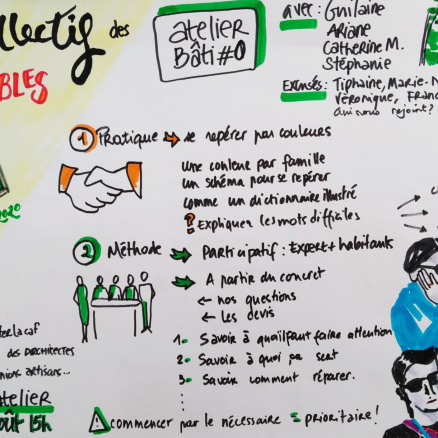 llectif des
BLES
atelier
Bâti #0
avec : Guilaine
Ariane
Catherine M.
Stéphanie
Excusés : Tiphaine, Marie-
Véronique, Franc
Qui nous rejoint ?
1 Pratique → se repérer par couleurs
une couleur par famille
un schéma pour se repérer
comme un dictionnaire illustré
? Expliquer les mots difficiles
2020
2 Méthode → Participatif : Expert + habitants
→ A partir du concret
← nos questions
← les devis
1- Savoir à quoi il faut faire attention
2- Savoir à quoi ça sert
3- Savoir comment réparer.
⋮
! commencer par le nécessaire = prioritaire !
avec la caf
des architectes
artisans...
atelier
oût 15h